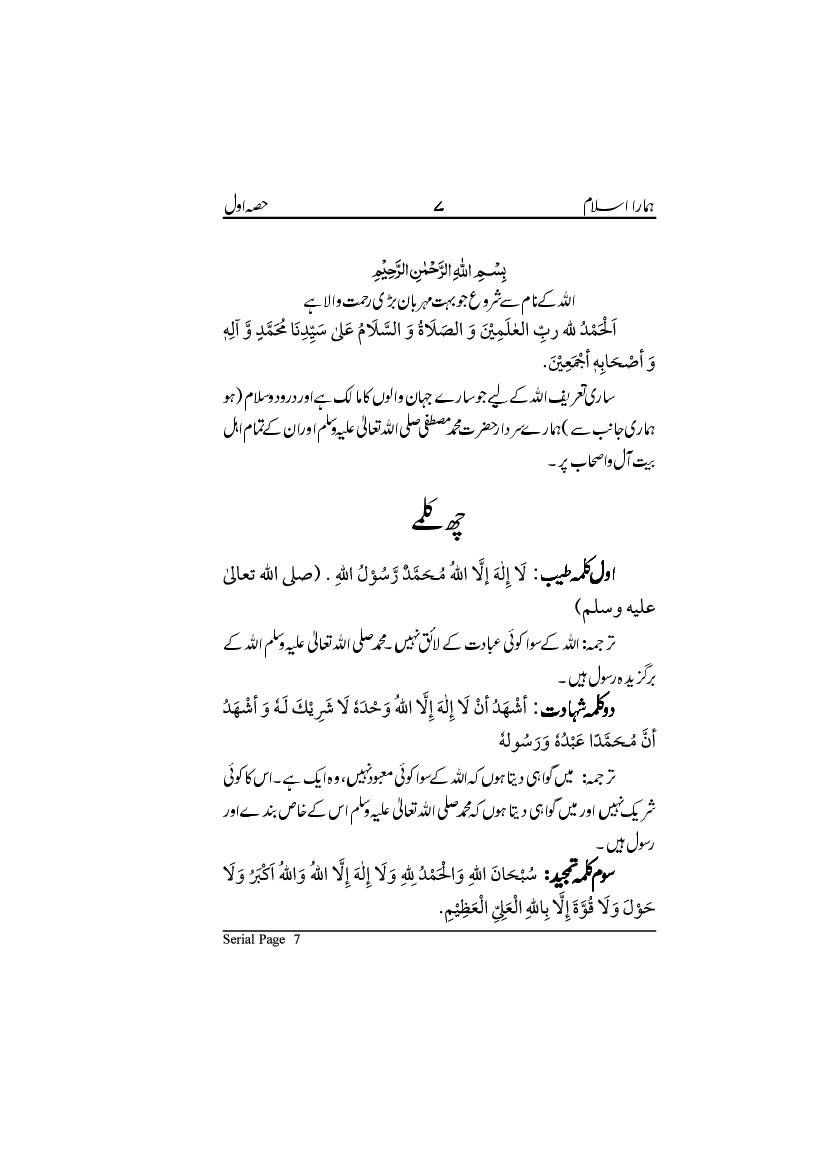 ہمارا اسلام ۷ حصہ اول
بِسْمِ اللّٰهِ الرَّحْمٰنِ الرَّحِيْمِ
اللہ کے نام سے شروع جو بہت مہربان بڑی رحمت والا ہے
اَلْحَمْدُ لله ربِّ العٰلَمِيْنَ وَ الصَلَاةُ وَ السَّلَامُ عَلىٰ سَيِّدِنَا مُحَمَّدٍ وَّ آلِهٖ
وَ أصْحَابِهٖ أجْمَعِيْنَ.
ساری تعریف اللہ کے لیے جو سارے جہان والوں کا مالک ہے اور درود وسلام (ہو
ہماری جانب سے) ہمارے سردار حضرت محمد مصطفی صلی اللہ تعالیٰ علیہ وسلم اور ان کے تمام اہل
بیت آل و اصحاب پر ۔
چھ کلمے
اول کلمہ طیب: لَا إِلٰهَ إلَّا اللهُ مُحَمَّدٌ رَّسُوْلُ اللهِ . (صلی الله تعالیٰ
علیه وسلم)
ترجمہ: اللہ کے سوا کوئی عبادت کے لائق نہیں ۔محمد صلی اللہ تعالیٰ علیہ وسلم اللہ کے
برگزیدہ رسول ہیں ۔
دو کلمہ شہادت: أشْهَدُ أنْ لَا إِلٰهَ إِلَّا اللهُ وَحْدَهٗ لَا شَرِيْكَ لَهٗ وَ أشْهَدُ
أنَّ مُحَمَّدًا عَبْدُهٗ وَرَسُولهٗ
ترجمہ: میں گواہی دیتا ہوں کہ اللہ کے سوا کوئی معبود نہیں، وہ ایک ہے۔ اس کا کوئی
شریک نہیں اور میں گواہی دیتا ہوں کہ محمد صلی اللہ تعالیٰ علیہ وسلم اس کے خاص بندے اور
رسول ہیں ۔
سوم کلمہ تمجید: سُبْحَانَ اللهِ وَالْحَمْدُ لِلهِ وَلَا إِلٰهَ إِلَّا اللهُ وَاللهُ اَكْبَرُ وَلَا
حَوْلَ وَلَا قُوَّةَ إِلَّا بِاللهِ الْعَلِيِّ الْعَظِيْمِ.
Serial Page 7